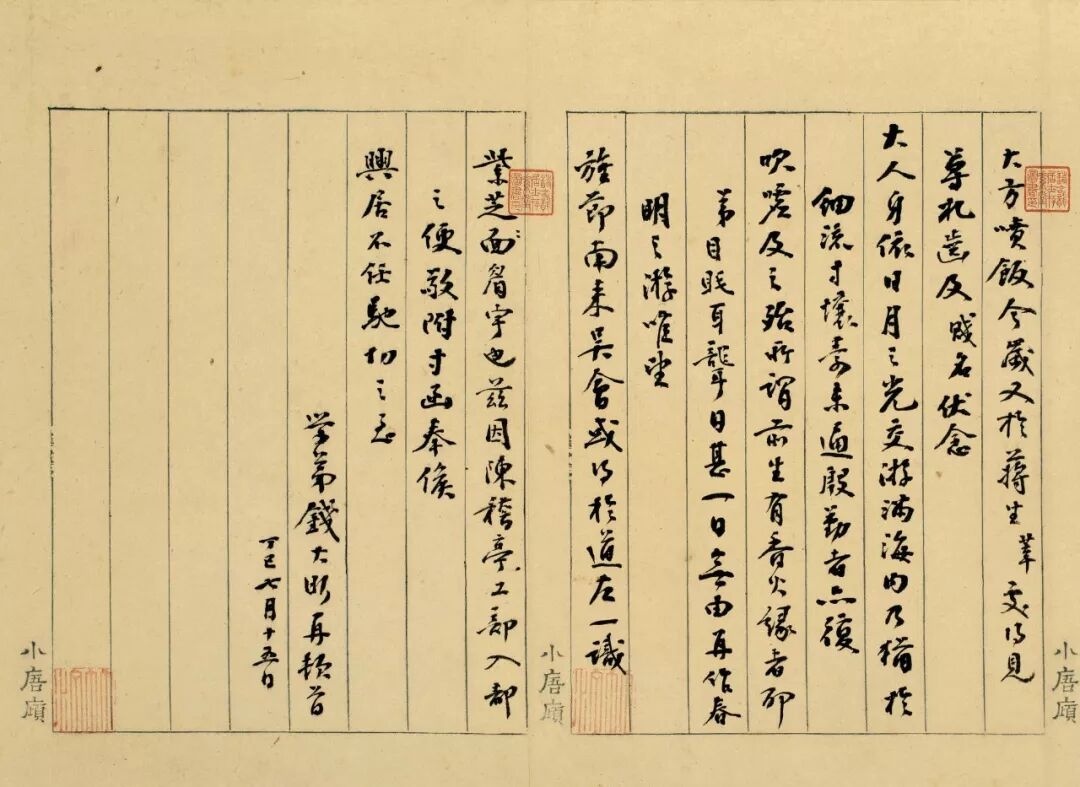 大方噴飯今歲又於蔣生莘處得見
尊札齒及賤名伏念
大人身依日月之光交游滿海内乃猶於
細流寸壤素未通殷勤者亦復
吹噓及之殆所謂前生有香火緣者耶
弟目眊耳聾日甚一日無由再作春
明之游唯望
旌節南來吳會或得於道左一識
紫芝面眉宇也茲因陳稽亭工部入都
之便敬附寸函奉候
興居不任馳切之至
学弟錢大昕再頓首
丁巳七月十五日
小唐
小唐
小唐